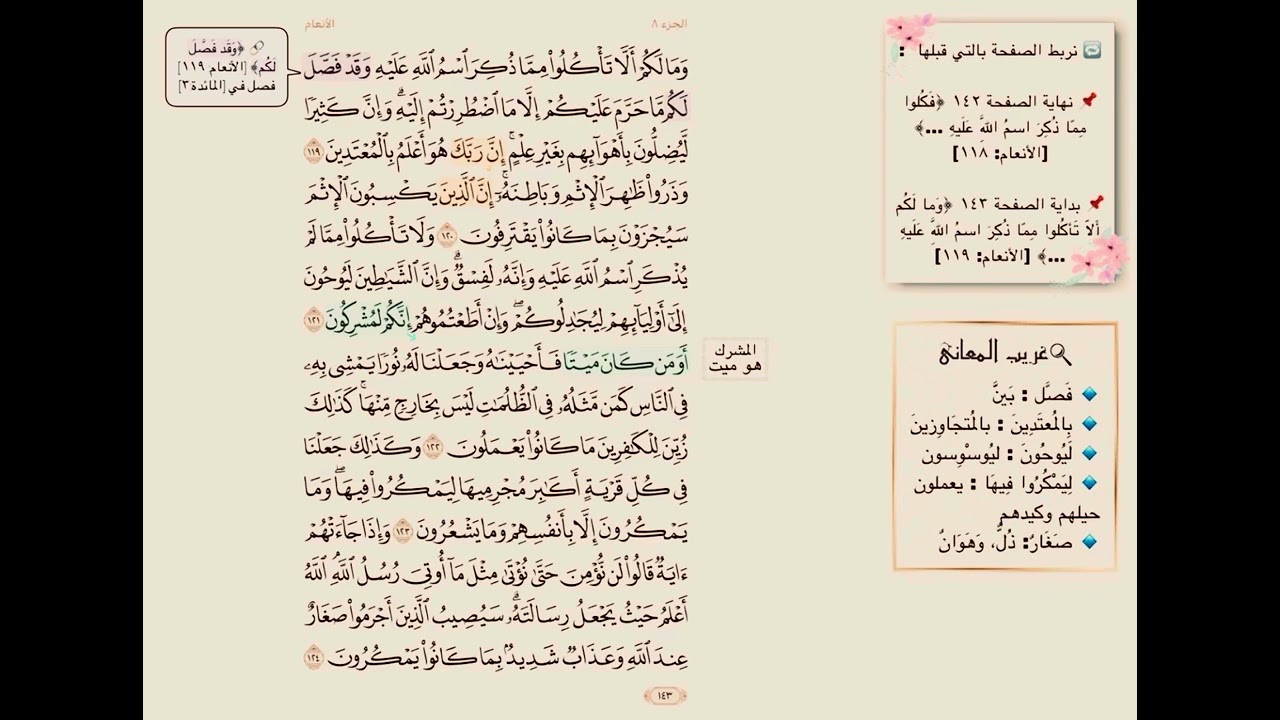 الجزء ٨
الأنعام
وَمَا لَكُمْ أَلَّا تَأْكُلُوا۟ مِمَّا ذُكِرَ ٱسْمُ ٱللَّهِ عَلَيْهِ وَقَدْ فَصَّلَ
لَكُم مَّا حَرَّمَ عَلَيْكُمْ إِلَّا مَا ٱضْطُرِرْتُمْ إِلَيْهِ ۗ وَإِنَّ كَثِيرًا
لَّيُضِلُّونَ بِأَهْوَآئِهِم بِغَيْرِ عِلْمٍ ۗ إِنَّ رَبَّكَ هُوَ أَعْلَمُ بِٱلْمُعْتَدِينَ ١١٩
وَذَرُوا۟ ظَـٰهِرَ ٱلْإِثْمِ وَبَاطِنَهُۥٓ ۚ إِنَّ ٱلَّذِينَ يَكْسِبُونَ ٱلْإِثْمَ
سَيُجْزَوْنَ بِمَا كَانُوا۟ يَقْتَرِفُونَ ١٢٠ وَلَا تَأْكُلُوا۟ مِمَّا لَمْ
يُذْكَرِ ٱسْمُ ٱللَّهِ عَلَيْهِ وَإِنَّهُۥ لَفِسْقٌ ۗ وَإِنَّ ٱلشَّيَـٰطِينَ لَيُوحُونَ
إِلَىٰٓ أَوْلِيَآئِهِمْ لِيُجَـٰدِلُوكُمْ ۖ وَإِنْ أَطَعْتُمُوهُمْ إِنَّكُمْ لَمُشْرِكُونَ ١٢١
أَوَمَن كَانَ مَيْتًا فَأَحْيَيْنَـٰهُ وَجَعَلْنَا لَهُۥ نُورًا يَمْشِى بِهِۦ
فِى ٱلنَّاسِ كَمَن مَّثَلُهُۥ فِى ٱلظُّلُمَـٰتِ لَيْسَ بِخَارِجٍ مِّنْهَا ۚ كَذَٰلِكَ
زُيِّنَ لِلْكَـٰفِرِينَ مَا كَانُوا۟ يَعْمَلُونَ ١٢٢ وَكَذَٰلِكَ جَعَلْنَا
فِى كُلِّ قَرْيَةٍ أَكَـٰبِرَ مُجْرِمِيهَا لِيَمْكُرُوا۟ فِيهَا ۖ وَمَا
يَمْكُرُونَ إِلَّا بِأَنفُسِهِمْ وَمَا يَشْعُرُونَ ١٢٣ وَإِذَا جَآءَتْهُمْ
ءَايَةٌ قَالُوا۟ لَن نُّؤْمِنَ حَتَّىٰ نُؤْتَىٰ مِثْلَ مَآ أُوتِىَ رُسُلُ ٱللَّهِ ۘ ٱللَّهُ
أَعْلَمُ حَيْثُ يَجْعَلُ رِسَالَتَهُۥ ۗ سَيُصِيبُ ٱلَّذِينَ أَجْرَمُوا۟ صَغَارٌ
عِندَ ٱللَّهِ وَعَذَابٌ شَدِيدٌۢ بِمَا كَانُوا۟ يَمْكُرُونَ ١٢٤
١٤٣
نربط الصفحة بالتي قبلها :
نهاية الصفحة ١٤٢ ﴿فَكُلوا
مِمّا ذُكِرَ اسمُ اللَّهِ عَلَيهِ ...﴾
[الأنعام: ١١٨]
بداية الصفحة ١٤٣ ﴿وَما لَكُم
أَلّا تَأكُلوا مِمّا ذُكِرَ اسمُ اللَّهِ عَلَيهِ
...﴾ [الأنعام: ١١٩]
غريب المعاني
فَصَّل : بَيَّنَ
بِالمُعتَدِينَ : بالمُتجَاوِزينَ
لَيُوحُونَ : ليُوسوِسون
لِيَمْكُرُوا فِيهَا : يعملون
حيلهم وكيدهم
صَغَارٌ: ذُلٌّ، وَهَوَانٌ
المشرك
هو ميت
﴿وَقَد فَصَّلَ
لَكُم﴾ [الأنعام ١١٩]
فصل في [المائدة ٣]